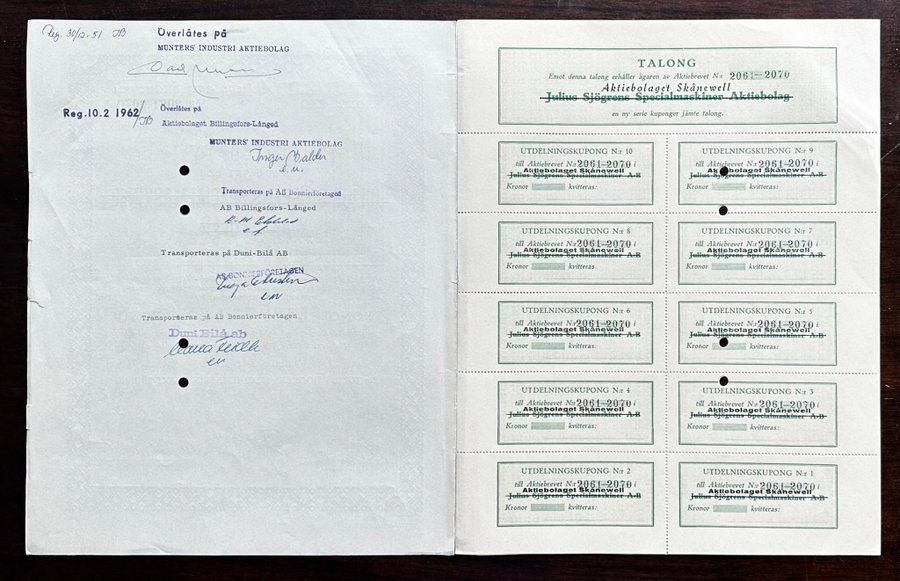 Reg. 30/12-51 JB
Överlåtes på
MUNTERS' INDUSTRI AKTIEBOLAG
Reg. 10.2 1962/JB
Överlåtes på
Aktiebolaget Billingsfors-Långed
MUNTERS' INDUSTRI AKTIEBOLAG
Transporteras på AB Bonnierföretagen
AB Billingsfors-Långed
Transporteras på Duni-Bilå AB
AB BONNIERFÖRETAGEN
Transporteras på AB Bonnierföretagen
Duni Bilå ab
TALONG
Emot denna talong erhåller ägaren av Aktiebrevet N:r 2061-2070
Aktiebolaget Skånewell
Julius Sjögrens Specialmaskiner Aktiebolag
en ny serie kuponger jämte talong.
UTDELNINGSKUPONG N:r 10
till Aktiebrevet N:r 2061-2070 i
Aktiebolaget Skånewell
Julius Sjögrens Specialmaskiner A-B
Kronor kvitteras:
UTDELNINGSKUPONG N:r 9
till Aktiebrevet N:r 2061-2070 i
Aktiebolaget Skånewell
Julius Sjögrens Specialmaskiner A-B
Kronor kvitteras:
UTDELNINGSKUPONG N:r 8
till Aktiebrevet N:r 2061-2070 i
Aktiebolaget Skånewell
Julius Sjögrens Specialmaskiner A-B
Kronor kvitteras:
UTDELNINGSKUPONG N:r 7
till Aktiebrevet N:r 2061-2070 i
Aktiebolaget Skånewell
Julius Sjögrens Specialmaskiner A-B
Kronor kvitteras:
UTDELNINGSKUPONG N:r 6
till Aktiebrevet N:r 2061-2070 i
Aktiebolaget Skånewell
Julius Sjögrens Specialmaskiner A-B
Kronor kvitteras:
UTDELNINGSKUPONG N:r 5
till Aktiebrevet N:r 2061-2070 i
Aktiebolaget Skånewell
Julius Sjögrens Specialmaskiner A-B
Kronor kvitteras:
UTDELNINGSKUPONG N:r 4
till Aktiebrevet N:r 2061-2070 i
Aktiebolaget Skånewell
Julius Sjögrens Specialmaskiner A-B
Kronor kvitteras:
UTDELNINGSKUPONG N:r 3
till Aktiebrevet N:r 2061-2070 i
Aktiebolaget Skånewell
Julius Sjögrens Specialmaskiner A-B
Kronor kvitteras:
UTDELNINGSKUPONG N:r 2
till Aktiebrevet N:r 2061-2070 i
Aktiebolaget Skånewell
Julius Sjögrens Specialmaskiner A-B
Kronor kvitteras:
UTDELNINGSKUPONG N:r 1
till Aktiebrevet N:r 2061-2070 i
Aktiebolaget Skånewell
Julius Sjögrens Specialmaskiner A-B
Kronor kvitteras: